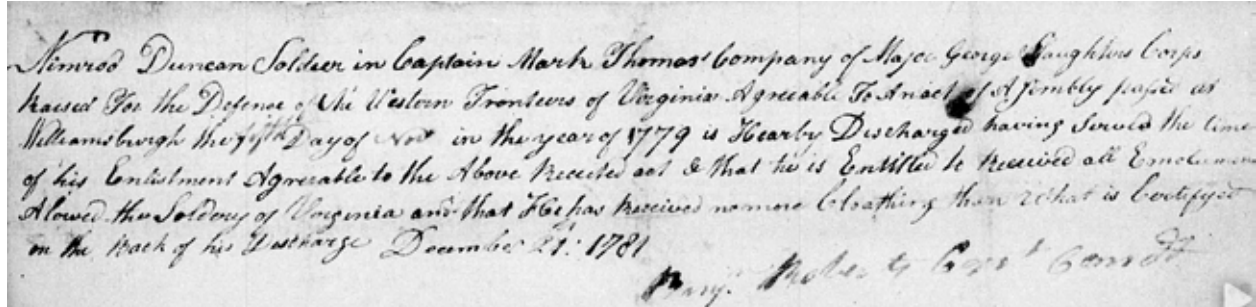 Nimrod Duncan Soldier in Captain Mark Thomas' Company of Major George Slaughters Corps
Raised For the Defence of the Western Fronteers of Virginia Agreeable To An act of Assembly passed at
Williamsburgh the fifth Day of Novr in the year of 1779 is Hearby Discharged having Served the time
of his Enlistment Agreeable to the Above Recited act & that he is Entitled to Received all Emoluments
Alowed the Soldiery of Virginia and that He has Received no more Cloathing than what is Certifyed
on the Back of his Discharge December 21st 1781
Benjn Roberts Capt Comdt